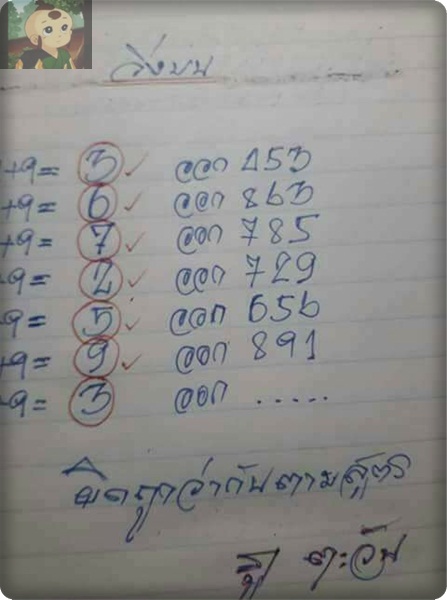 วิ่งบน
+9= 3 ✓ ออก 153
+9= 6 ✓ ออก 863
+9= 7 ✓ ออก 785
+9= 2 ✓ ออก 729
9= 5 ✓ ออก 656
+9= 9 ✓ ออก 891
+9= 3 ออก .....
ผิดถูกว่ากันตามสูตร
ตะวัน